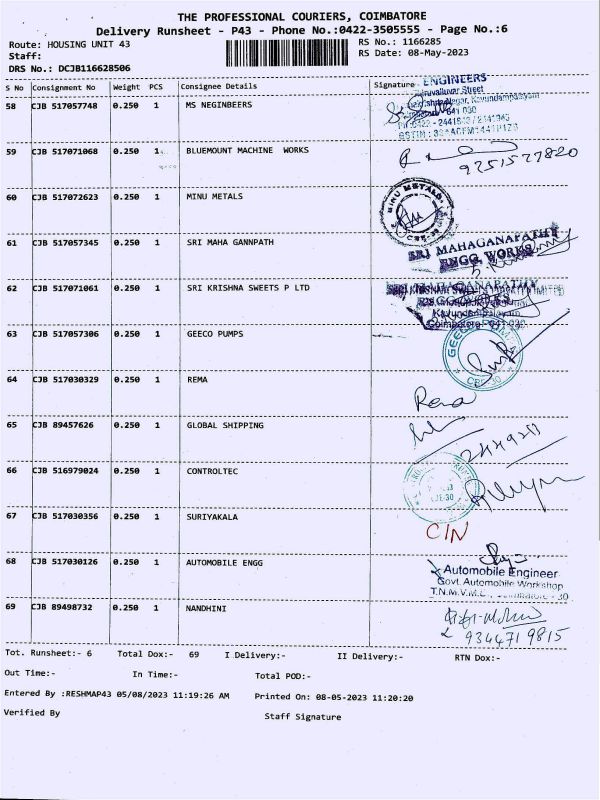 THE PROFESSIONAL COURIERS, COIMBATORE
Delivery Runsheet - P43 - Phone No.:0422-3505555 - Page No.:6
Route: HOUSING UNIT 43 RS No.: 1166285
Staff: RS Date: 08-May-2023
DRS No.: DCJB116628506
S No Consignment No Weight PCS Consignee Details Signature
58 CJB 517057748 0.250 1 MS NEGINBEERS
ENGINEERS
59 CJB 517071068 0.250 1 BLUEMOUNT MACHINE WORKS
9251577820
60 CJB 517072623 0.250 1 MINU METALS
MINU METALS
61 CJB 517057345 0.250 1 SRI MAHA GANNPATH
SRI MAHAGANAPATHY
ENGG. WORKS
62 CJB 517071061 0.250 1 SRI KRISHNA SWEETS P LTD
63 CJB 517057306 0.250 1 GEECO PUMPS
GEECO
64 CJB 517030329 0.250 1 REMA
Rema
65 CJB 89457626 0.250 1 GLOBAL SHIPPING
66 CJB 516979024 0.250 1 CONTROLTEC
67 CJB 517030356 0.250 1 SURIYAKALA
CIN
68 CJB 517030126 0.250 1 AUTOMOBILE ENGG
Automobile Engineer
Govt. Automobile Workshop
69 CJB 89498732 0.250 1 NANDHINI
9344719815
Tot. Runsheet:- 6 Total Dox:- 69 I Delivery:- II Delivery:- RTN Dox:-
Out Time:- In Time:- Total POD:-
Entered By :RESHMAP43 05/08/2023 11:19:26 AM Printed On: 08-05-2023 11:20:20
Verified By Staff Signature